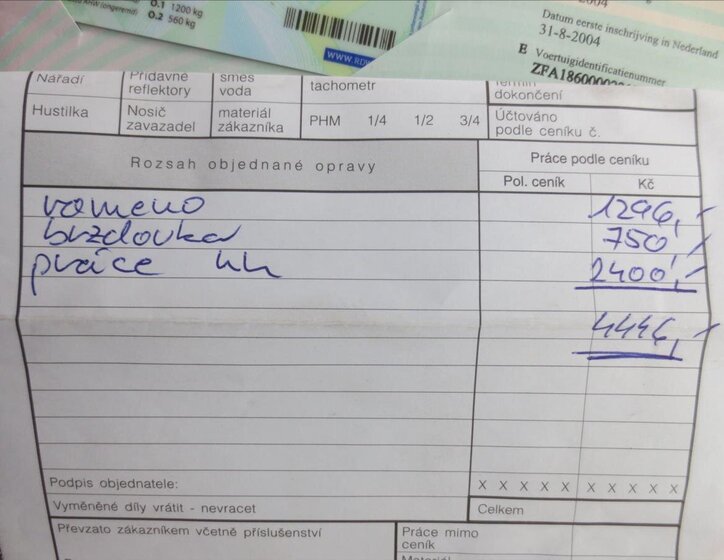 O.1 1200 kg
O.2 560 kg
WWW.RD
2004
Datum eerste inschrijving in Nederland
31-8-2004
E Voertuigidentificatienummer
ZFA1860000
Nářadí Přídavné reflektory směs voda tachometr Termín dokončení
Hustilka Nosič zavazadel materiál zákazníka PHM 1/4 1/2 3/4 Účtováno podle ceníku č.
Rozsah objednané opravy Práce podle ceníku
Pol. ceník Kč
rameno 1296,-
brzdovka 750,-
práce 4h 2400,-
4446,-
Podpis objednatele: X X X X X X X X X X
Vyměněné díly vrátit - nevracet Celkem
Převzato zákazníkem včetně příslušenství Práce mimo ceník